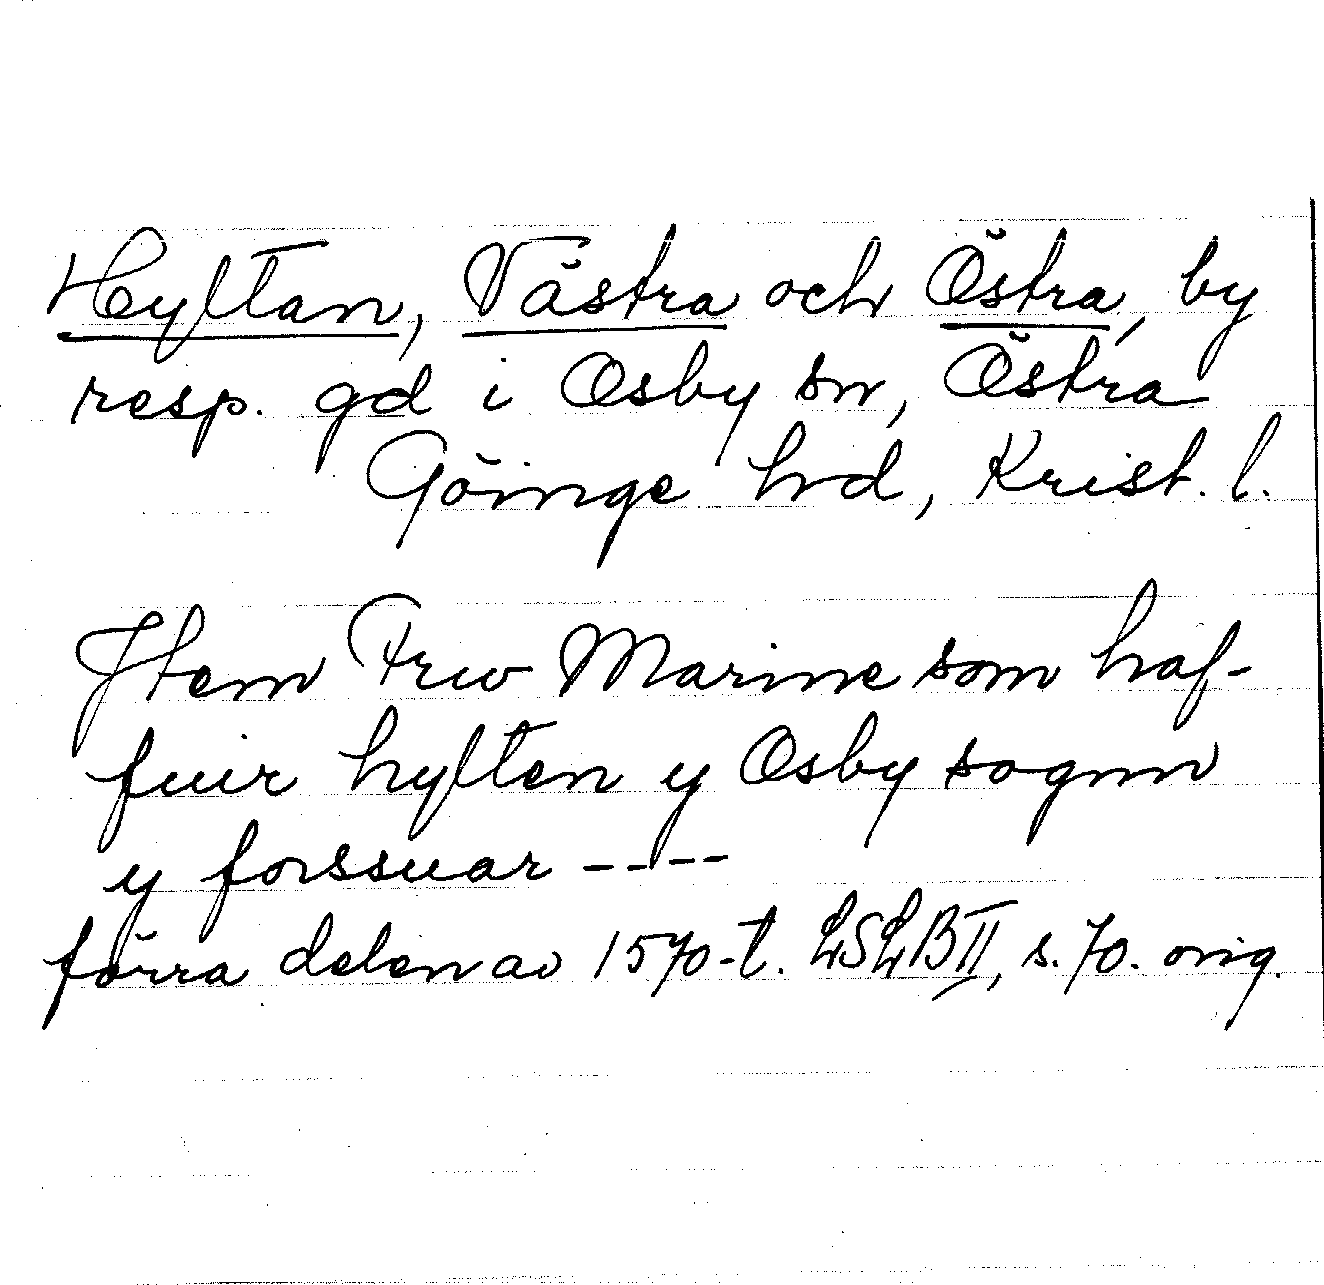 Hyltan, Västra och Östra, by
resp. gd i Osby sn, Östra
Göinge hd, Krist. l.
Item Frw Marine som haf-
fuir hylten y Osby sognn
y forssuar ----
förra delen av 1570-t. LSLB II, s. 70. orig.